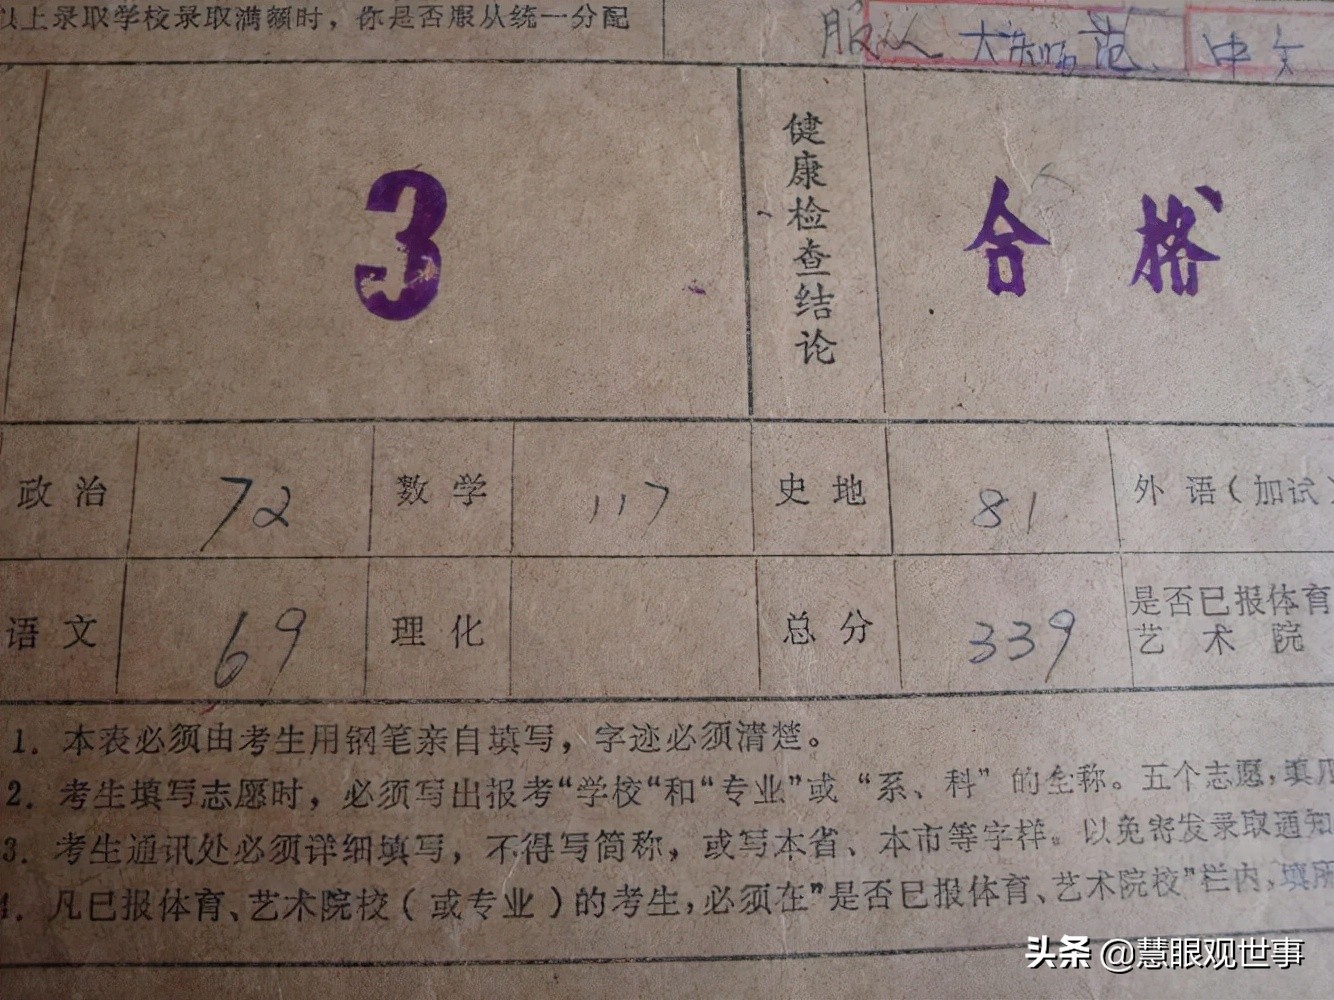 以上录取学校录取满额时，你是否服从统一分配
服从 大庆师范、中文
3
健康检查结论
合格
政治 72 数学 117 史地 81 外语（加试）
语文 69 理化 总分 339 是否已报体育
艺术院
1．本表必须由考生用钢笔亲自填写，字迹必须清楚。
2．考生填写志愿时，必须写出报考“学校“和“专业”或“系、科”的全称。五个志愿，填
3．考生通讯处必须详细填写，不得写简称，或写本省、本市等字样。以免寄发录取通知
4．凡已报体育、艺术院校（或专业）的考生，必须在”是否已报体育、艺术院校”栏内，填
头条 @慧眼观世事